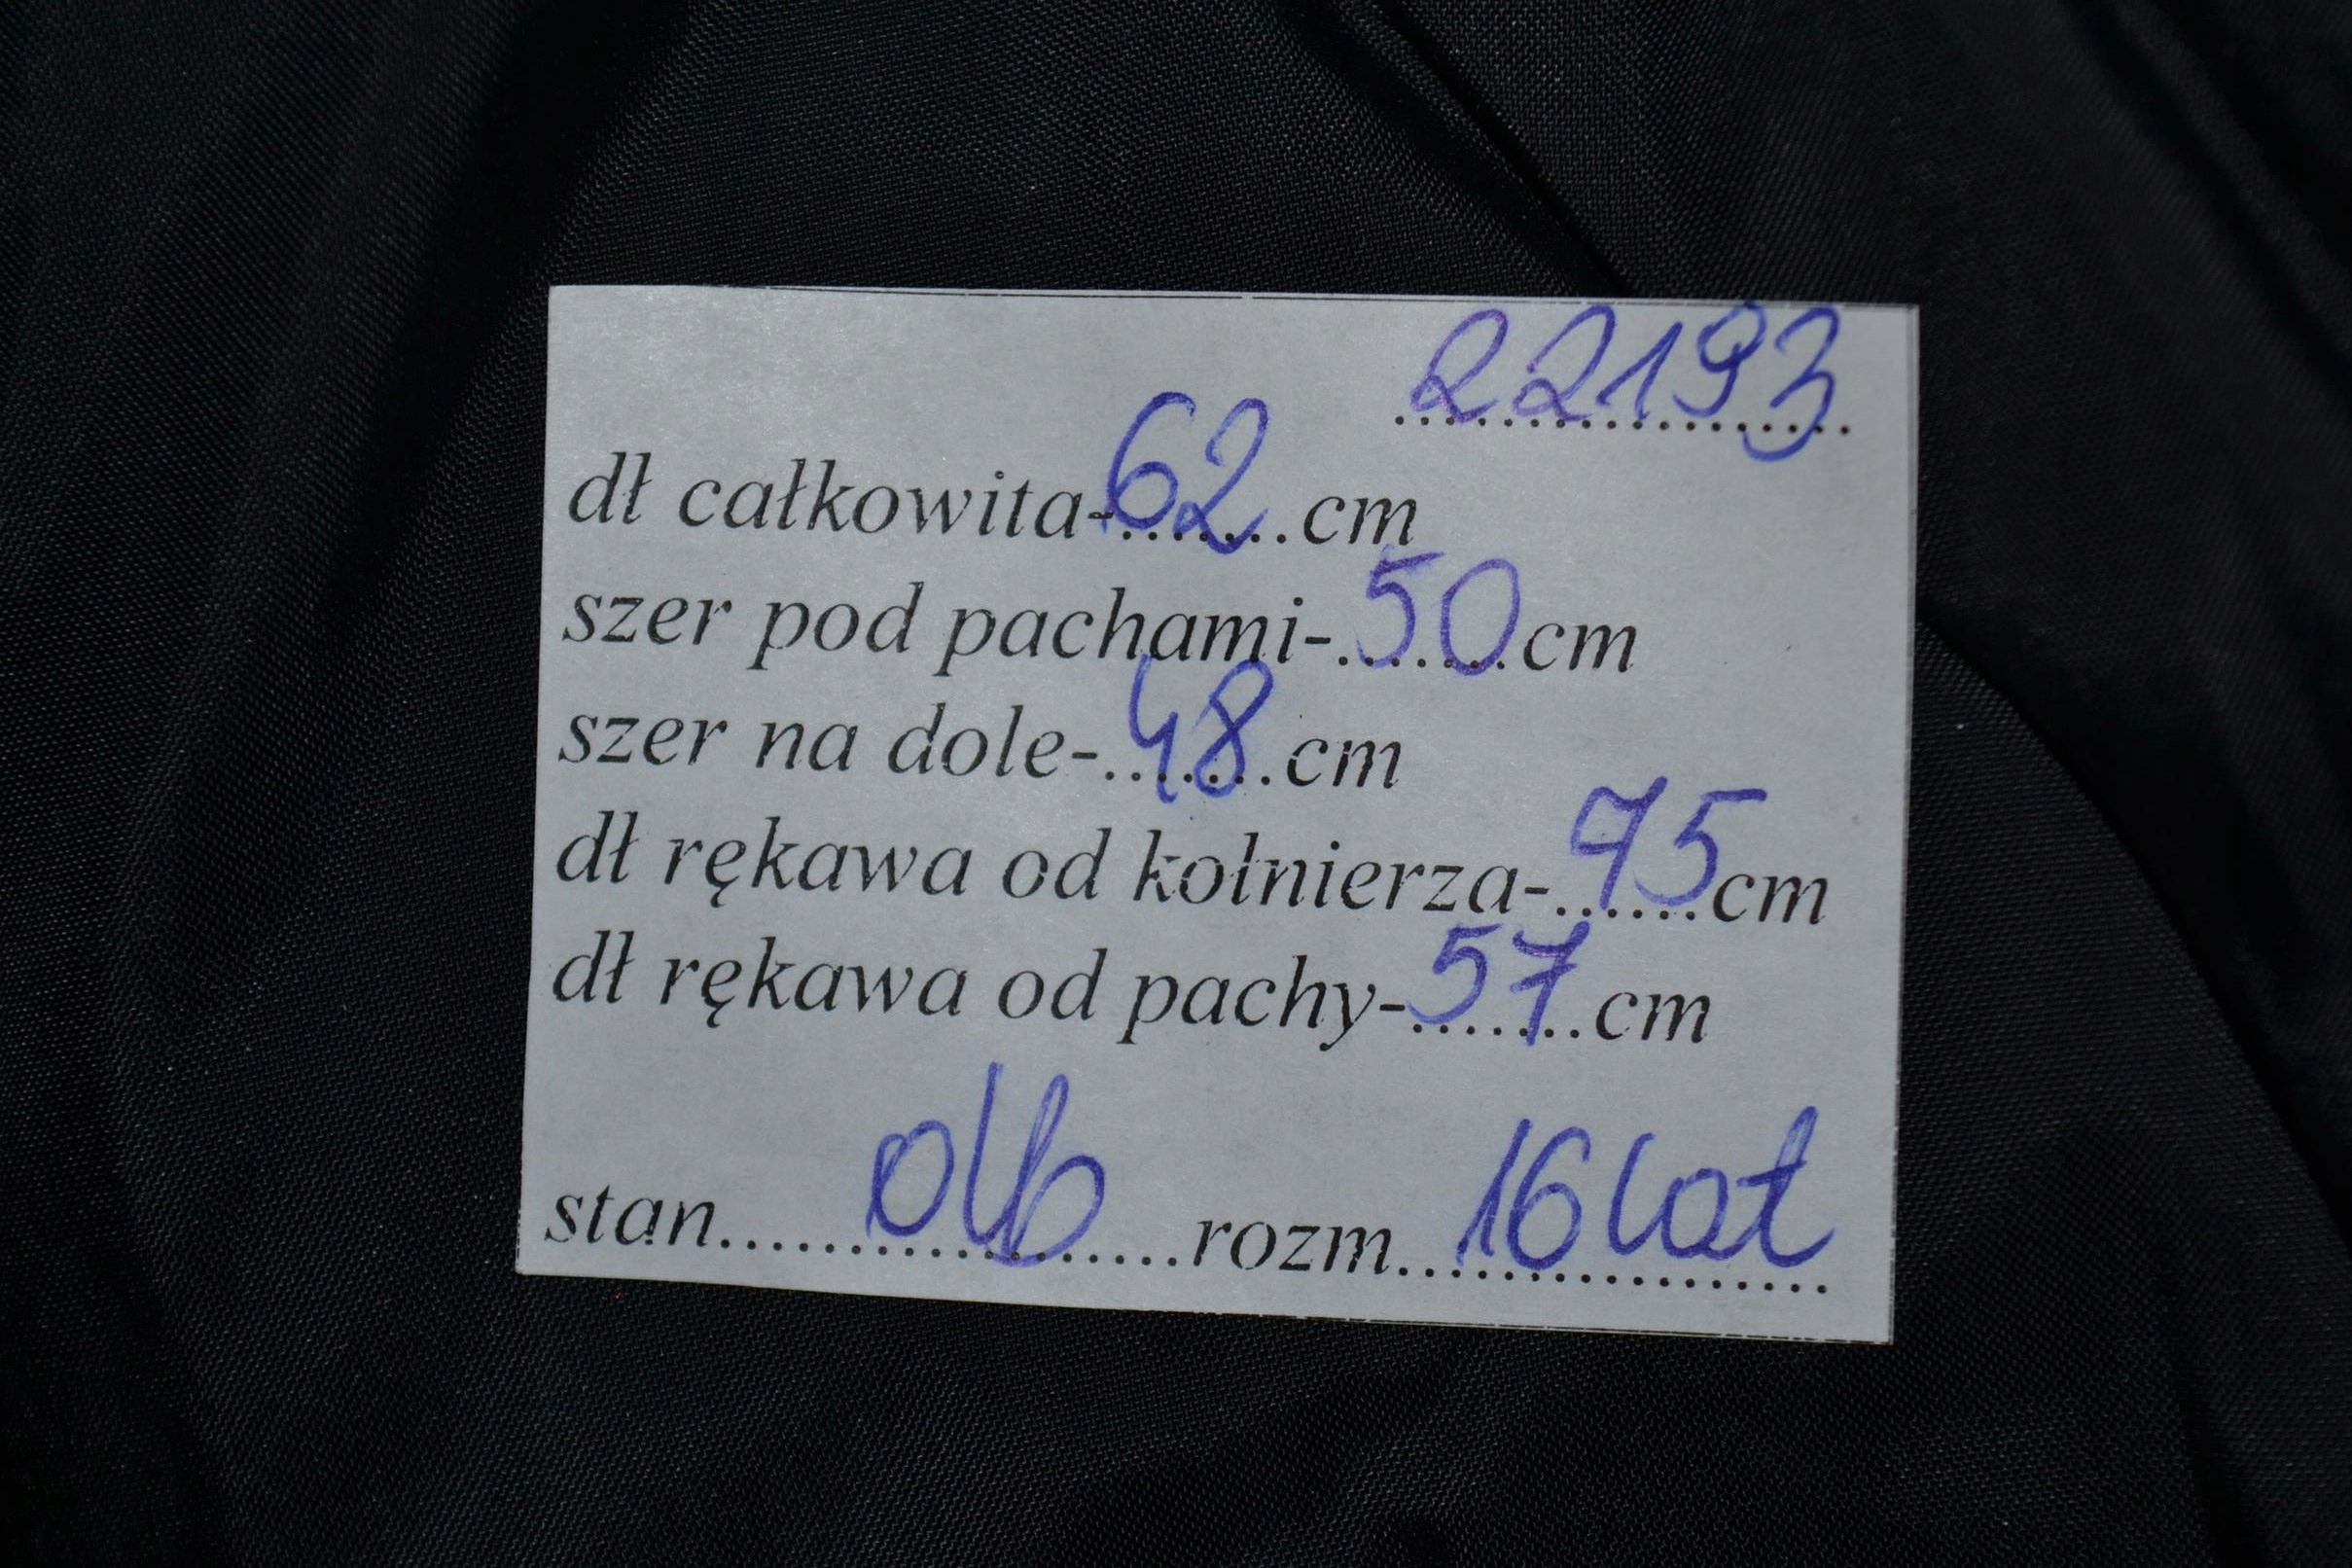 22193
dł całkowita-62 cm
szer pod pachami-50 cm
szer na dole-48 cm
dł rękawa od kołnierza-75 cm
dł rękawa od pachy-57 cm
stan rozm 16 lat